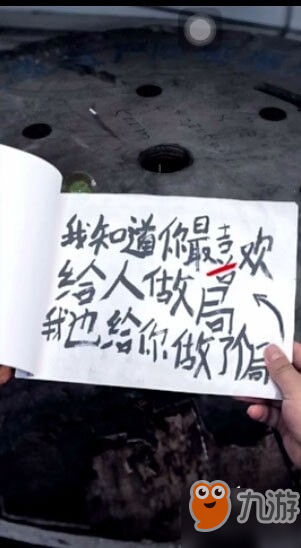 我知道你最喜欢
给人做局
我也给你做了个局
九游